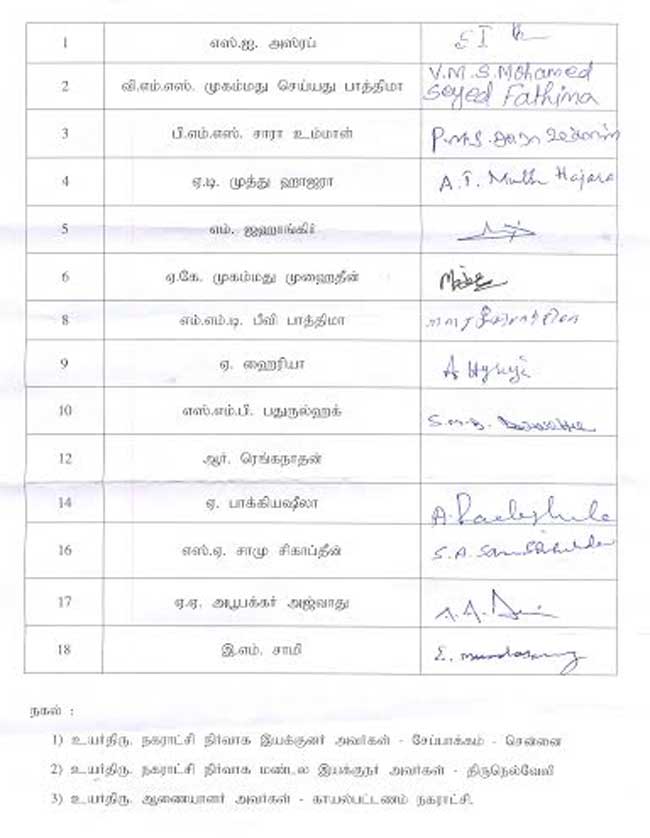 1 எஸ்.ஐ. அஸ்ரப்
2 வி.எம்.எஸ். முகம்மது செய்யது பாத்திமா V.M.S.Mohamed
Seyed Fathima
3 பி.எம்.எஸ். சாரா உம்மாள்
4 ஏ.டி. முத்து ஹாஜரா A.T. Muthu Hajara
5 எம். ஜஹாங்கிர்
6 ஏ.கே. முகம்மது முஹைதீன்
8 எம்.எம்.டி. பீவி பாத்திமா
9 ஏ. ஹைரியா
10 எஸ்.எம்.பி. பதுருல்ஹக் S.M.B.
12 ஆர். ரெங்கநாதன்
14 ஏ. பாக்கியஷீலா A.
16 எஸ்.ஏ. சாமு சிகாப்தீன் S.A.
17 ஏ.ஏ. அபூபக்கர் அஜ்வாது A.A.
18 இ.எம். சாமி E.
நகல் :
1) உயர்திரு. நகராட்சி நிர்வாக இயக்குனர் அவர்கள் - சேப்பாக்கம் - சென்னை
2) உயர்திரு. நகராட்சி நிர்வாக மண்டல இயக்குநர் அவர்கள் - திருநெல்வேலி
3) உயர்திரு. ஆணையாளர் அவர்கள் - காயல்பட்டணம் நகராட்சி.